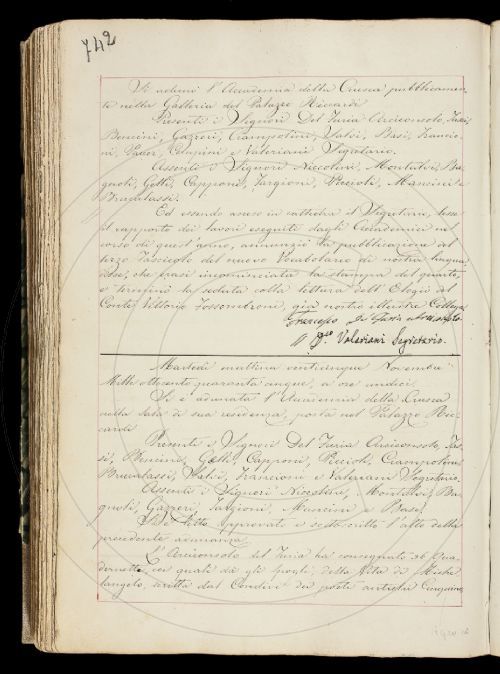 742
Si adunò l'Accademia della Crusca pubblicamen-
te nella Galleria del Palazzo Riccardi
Presenti i Signori Del Furia Arciconsolo, Tassi,
Bencini, Gazzeri, Ciampolini, Salvi, Basi, Francio-
ni, e Valeriani Segretario.
Assenti i Signori Niccolini, Montalvi, Ba-
gnoli, Gelli, Capponi, Targioni, Piccioli, Mancini e
Brucalassi.
Ed essendo asceso in cattedra il Segretario, lesse
il rapporto dei lavori eseguiti dagli Accademici nel
corso di quest'anno, annunziò la pubblicazione del
terzo fascicolo del nuovo Vocabolario di nostra lingua
disse, che erasi incominciata la stampa del quarto,
e terminò la seduta colla lettura dell'Elogio del
Conte Vittorio Fossombroni, già nostro illustre Collega
Francesco Del Furia Arciconsolo
Valeriani Segretario.
Martedì mattina venticinque Novembre
Mille ottocento quaranta cinque, a ore undici.
Si è adunata l'Accademia della Crusca
nella Sala di sua residenza, posta nel Palazzo Ric-
cardi
Presenti i Signori Del Furia Arciconsolo, Tas-
si, Bencini, Gelli, Capponi, Piccioli, Ciampolini
Brucalassi, Salvi, Francioni e Valeriani Segretario.
Assenti i Signori Niccolini, Montalvi, Ba-
gnoli, Gazzeri, Targioni, Mancini e Basi.
Si è letto, approvato e sottoscritto l'atto della
precedente adunanza.
L'Arciconsolo del Furia ha consegnato 36 Qua-
dernetti, coi quali dà gli spogli, della Vita di Miche-
langelo, scritta dal Condivi dei poeti antichi